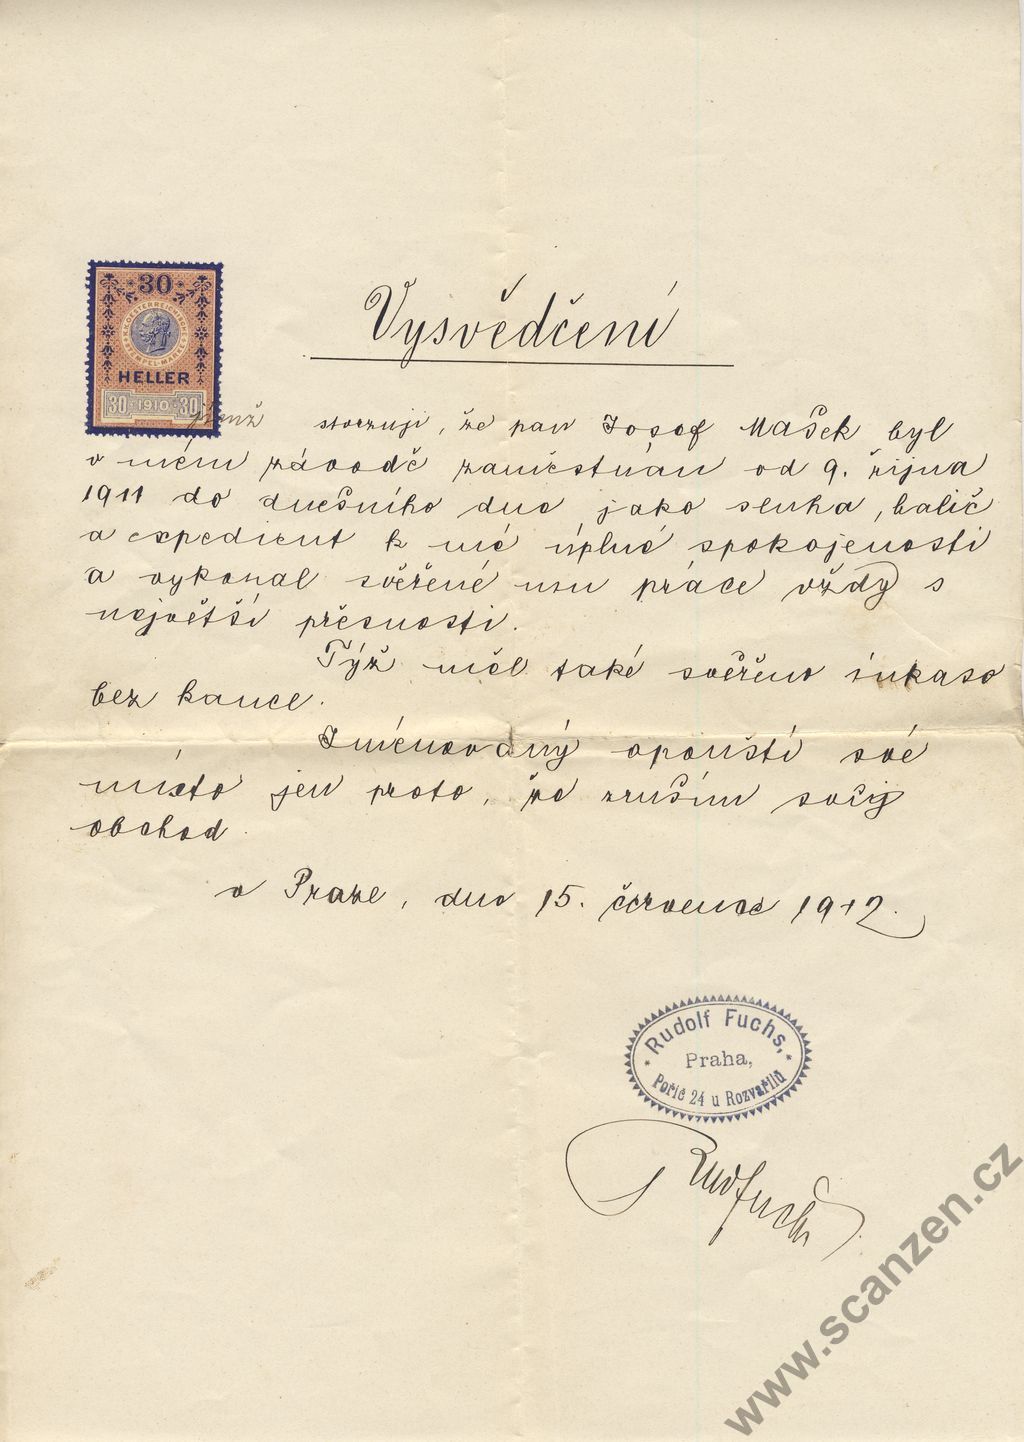 Vysvědčení
30
K.K. OESTERREICHISCHE STEMPEL-MARKE
HELLER
30 1910 30
jímž stvrzuji, že pan Josef Mašek byl
v mém závodě zaměstnán od 9. října
1911 do dnešního dne jako sluha, balič
a expedient k mé úplné spokojenosti
a vykonal svěřené mu práce vždy s
největší přesností.
Týž měl také svěřeno inkaso
bez kauce.
Jmenovaný opouští své
místo jen proto, že zruším svůj
obchod.
v Praze, dne 15. července 1912.
Rudolf Fuchs,
Praha,
Poříč 24 u Rozvařilů
Rud Fuchs
www.scanzen.cz